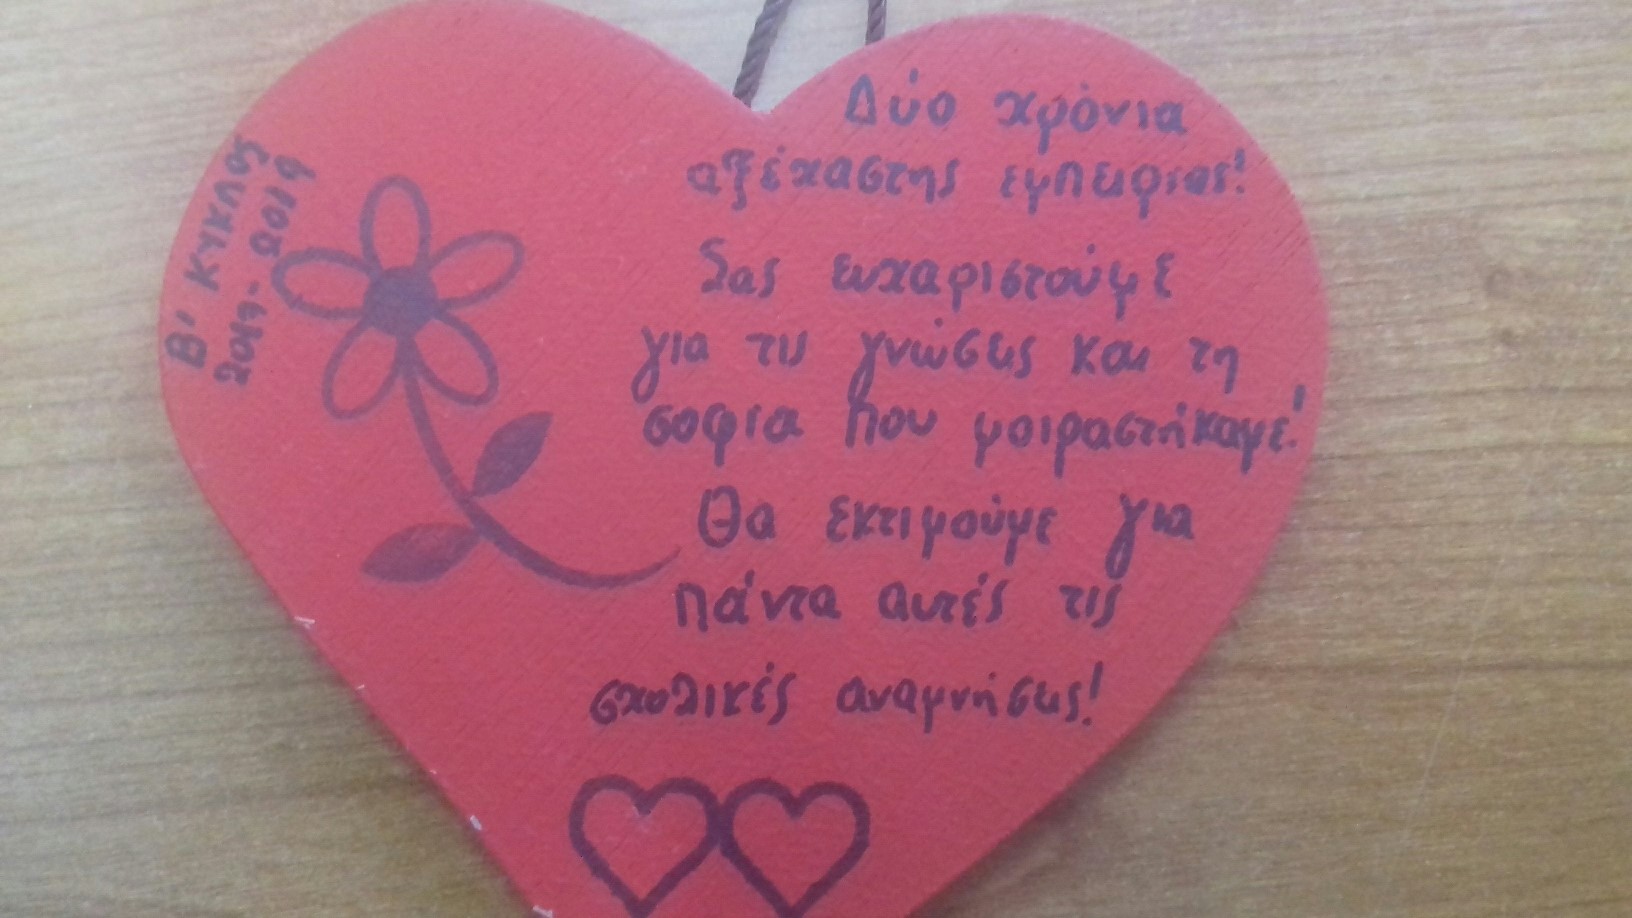 Β' ΚΥΚΛΟΣ
2017-2019
Δύο χρόνια
αξέχαστης εμπειρίας!
Σας ευχαριστούμε
για τις γνώσεις και τη
σοφία που μοιραστήκαμε!
Θα εκτιμούμε για
πάντα αυτές τις
σχολικές αναμνήσεις!